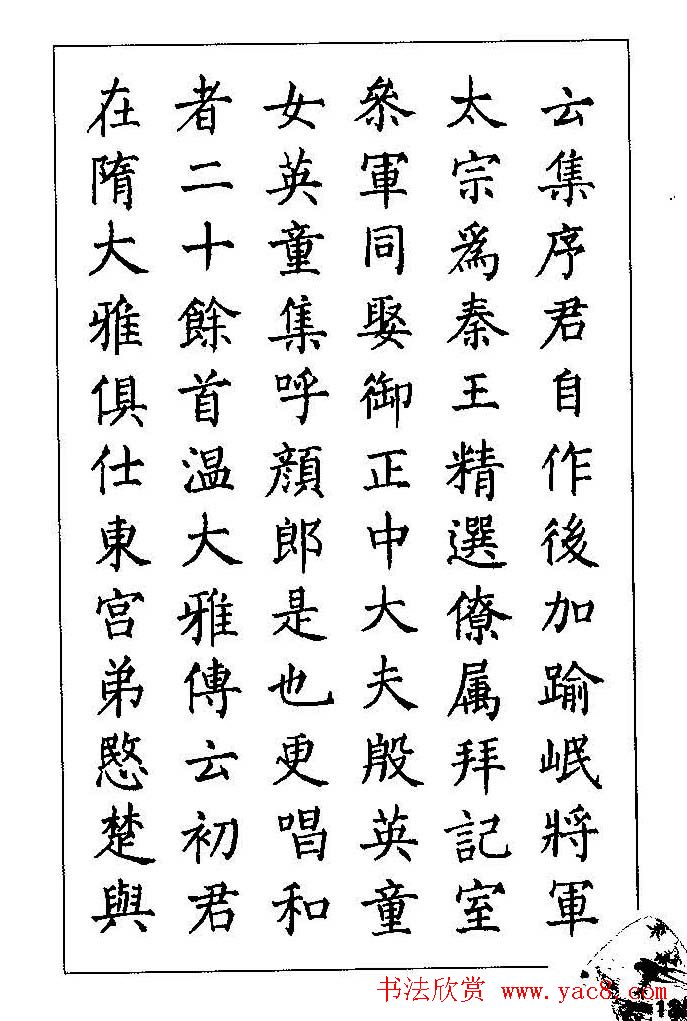 云集序君自作後加踰岷將軍
太宗爲秦王精選僚属拜記室
叅軍同娶御正中大夫殷英童
女英童集呼顔郎是也更唱和
者二十餘首温大雅傳云初君
在隋大雅俱仕東宫弟愍楚與
书法欣赏 www.yac8.com